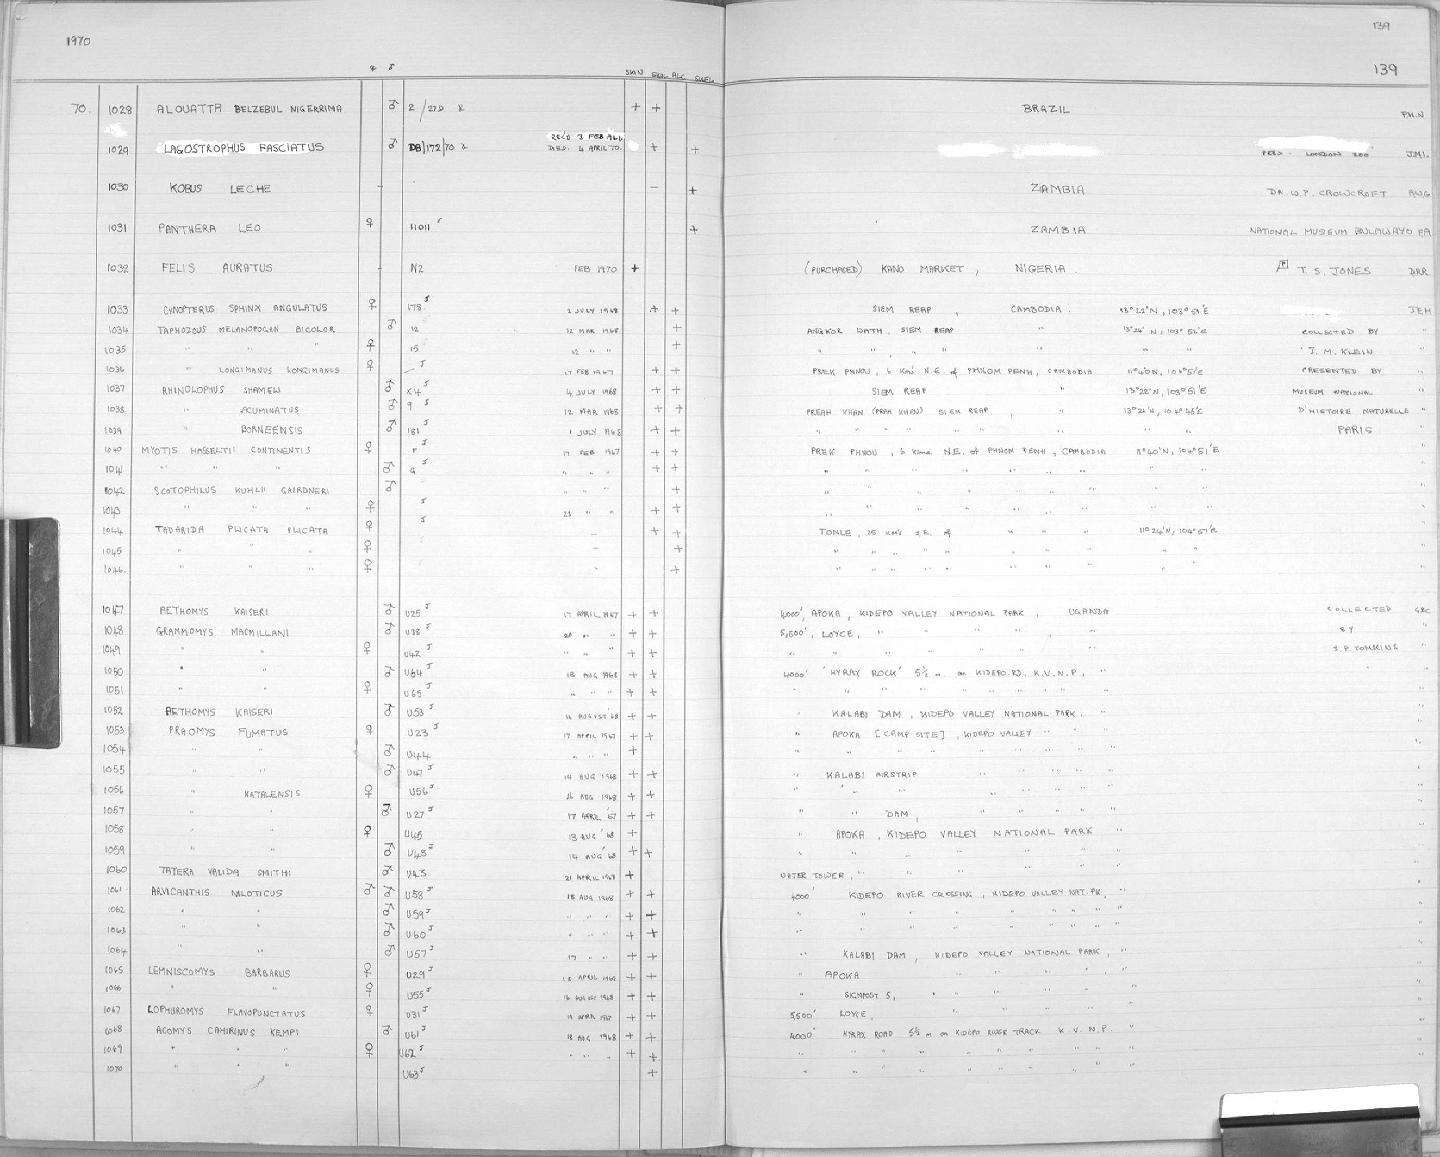 1970
139
139
♀ ♂ SKIN SKUL ALC SKEL
70. 1028 ALOUATTA BELZEBUL NIGERRIMA ♂ 2/27D + + BRAZIL P.H.N
1029 LAGOSTROPHUS FASCIATUS ♂ DB/172/70 REC'D 3 FEB DIED. 4 APRIL 70. + + LONDON ZOO
1030 KOBUS LECHE - - + ZAMBIA DR W.P. CROWCROFT
1031 PANTHERA LEO ♀ 11011 + ZAMBIA NATIONAL MUSEUM BULAWAYO
1032 FELIS AURATUS - N2 FEB 1970 + (PURCHASED) KANO MARKET, NIGERIA. T. S. JONES
1033 CYNOPTERUS SPHINX ANGULATUS ♀ 178 2 JULY 1968 + + SIEM REAP, CAMBODIA. 13°22'N, 103°51'E JEH
1034 TAPHOZOUS MELANOPOGAN BICOLOR ♂ 12 12 MAR 1968 + ANGKOR WATH, SIEM REAP " COLLECTED BY "
1035 " " " ♀ 15 12 " " + " " " " " " J. M. KLEIN "
1036 " LONGIMANUS LONGIMANUS ♀ 17 FEB 1967 + + PREK PHNOU, 6 KMS N.E. of PHNOM PENH, CAMBODIA PRESENTED BY "
1037 RHINOLOPHUS SHAMELI ♂ X4 4 JULY 1968 + + SIEM REAP " 13°22'N, 103°51'E MUSEUM NATIONAL "
1038 " ACUMINATUS ♂ 9 12 MAR 1968 + + PREAH KHAN (PRAH KHAN) SIEM REAP, " D'HISTOIRE NATURELLE "
1039 " BORNEENSIS ♂ 181 1 JULY 1968 + + " " " " " " PARIS "
1040 MYOTIS HASSELTII CONTINENTIS ♀ F 17 FEB 1967 + + PREK PHNOU, 6 kms. N.E. of PHNOM PENH, CAMBODIA 11°40'N, 104°51'E
1041 " " " ♂ G " " " + + " " " " " "
1042 SCOTOPHILUS KUHLII GAIRDNERI ♂ " " " + " " " " " "
1043 " " " ♀ " " + + " " " " " "
1044 TADARIDA PLICATA PLICATA ♀ - + + TONLE, 25 KMS S.E. of " " " 11°24'N, 104°57'E
1045 " " " ♀ - + " " " " " "
1046 " " " ♀ - + " " " " " "
1047 AETHOMYS KAISERI ♂ U25 17 APRIL 1967 + + 4000', APOKA, KIDEPO VALLEY NATIONAL PARK, UGANDA COLLECTED
1048 GRAMMOMYS MACMILLANI ♂ U38 " " + + 5,500', LOYCE, " " " " BY "
1049 " " ♀ U42 " " " + + " " " " " " S.P. TOMKINS "
1050 " " ♂ U64 18 AUG 1968 + + 4000' 'HYRAX ROCK' 5½ m. on KIDEPO RD. K.V.N.P., "
1051 " " ♀ U65 " " " + + " " " " " "
1052 AETHOMYS KAISERI ♂ U53 16 AUGUST 68 + + " KALABI DAM, KIDEPO VALLEY NATIONAL PARK. "
1053 PRAOMYS FUMATUS ♀ U23 17 APRIL 1967 + + " APOKA [CAMP SITE], KIDEPO VALLEY " "
1054 " " ♂ U44 " " " + " " " " " "
1055 " " ♂ 14 AUG 1968 + + " KALABI AIRSTRIP " " " "
1056 " NATALENSIS ♀ U56 16 AUG 1968 + + " " " " " "
1057 " " ♂ U27 17 APRIL '67 + + " " DAM, " " " "
1058 " " ♀ U45 13 AUG '68 + " APOKA, KIDEPO VALLEY NATIONAL PARK "
1059 " " ♂ U48 14 AUG '68 + + " " " " " "
1060 TATERA VALIDA SMITHI ♂ 21 APRIL 1967 + WATER TOWER, " " " " "
1061 ARVICANTHIS NILOTICUS ♂ ♂ U58 18 AUG 1968 + + 4000' KIDEPO RIVER CROSSING, KIDEPO VALLEY NAT. PK, "
1062 " " ♂ U59 " " " + + " " " " " "
1063 " " ♂ U60 " " " + + " " " " " "
1064 " " ♂ U57 17 " " + + " KALABI DAM, KIDEPO VALLEY NATIONAL PARK, "
1065 LEMNISCOMYS BARBARUS ♀ U29 18 APRIL 1967 + + " APOKA " " " "
1066 " " ♀ U55 16 AUGUST 1968 + + " SIGNPOST 5, " " " " "
1067 LOPHUROMYS FLAVOPUNCTATUS ♀ U31 + + 5,500' LOYCE, " " " " "
1068 ACOMYS CAHIRINUS KEMPI ♂ U61 18 AUG 1968 + + 4000' HYRAX ROAD 5½ m on KIDEPO RIVER TRACK K.V.N.P. "
1069 " " " ♀ U62 " " " + + " " " " " "
1070 " " " U63 + " " " " " "